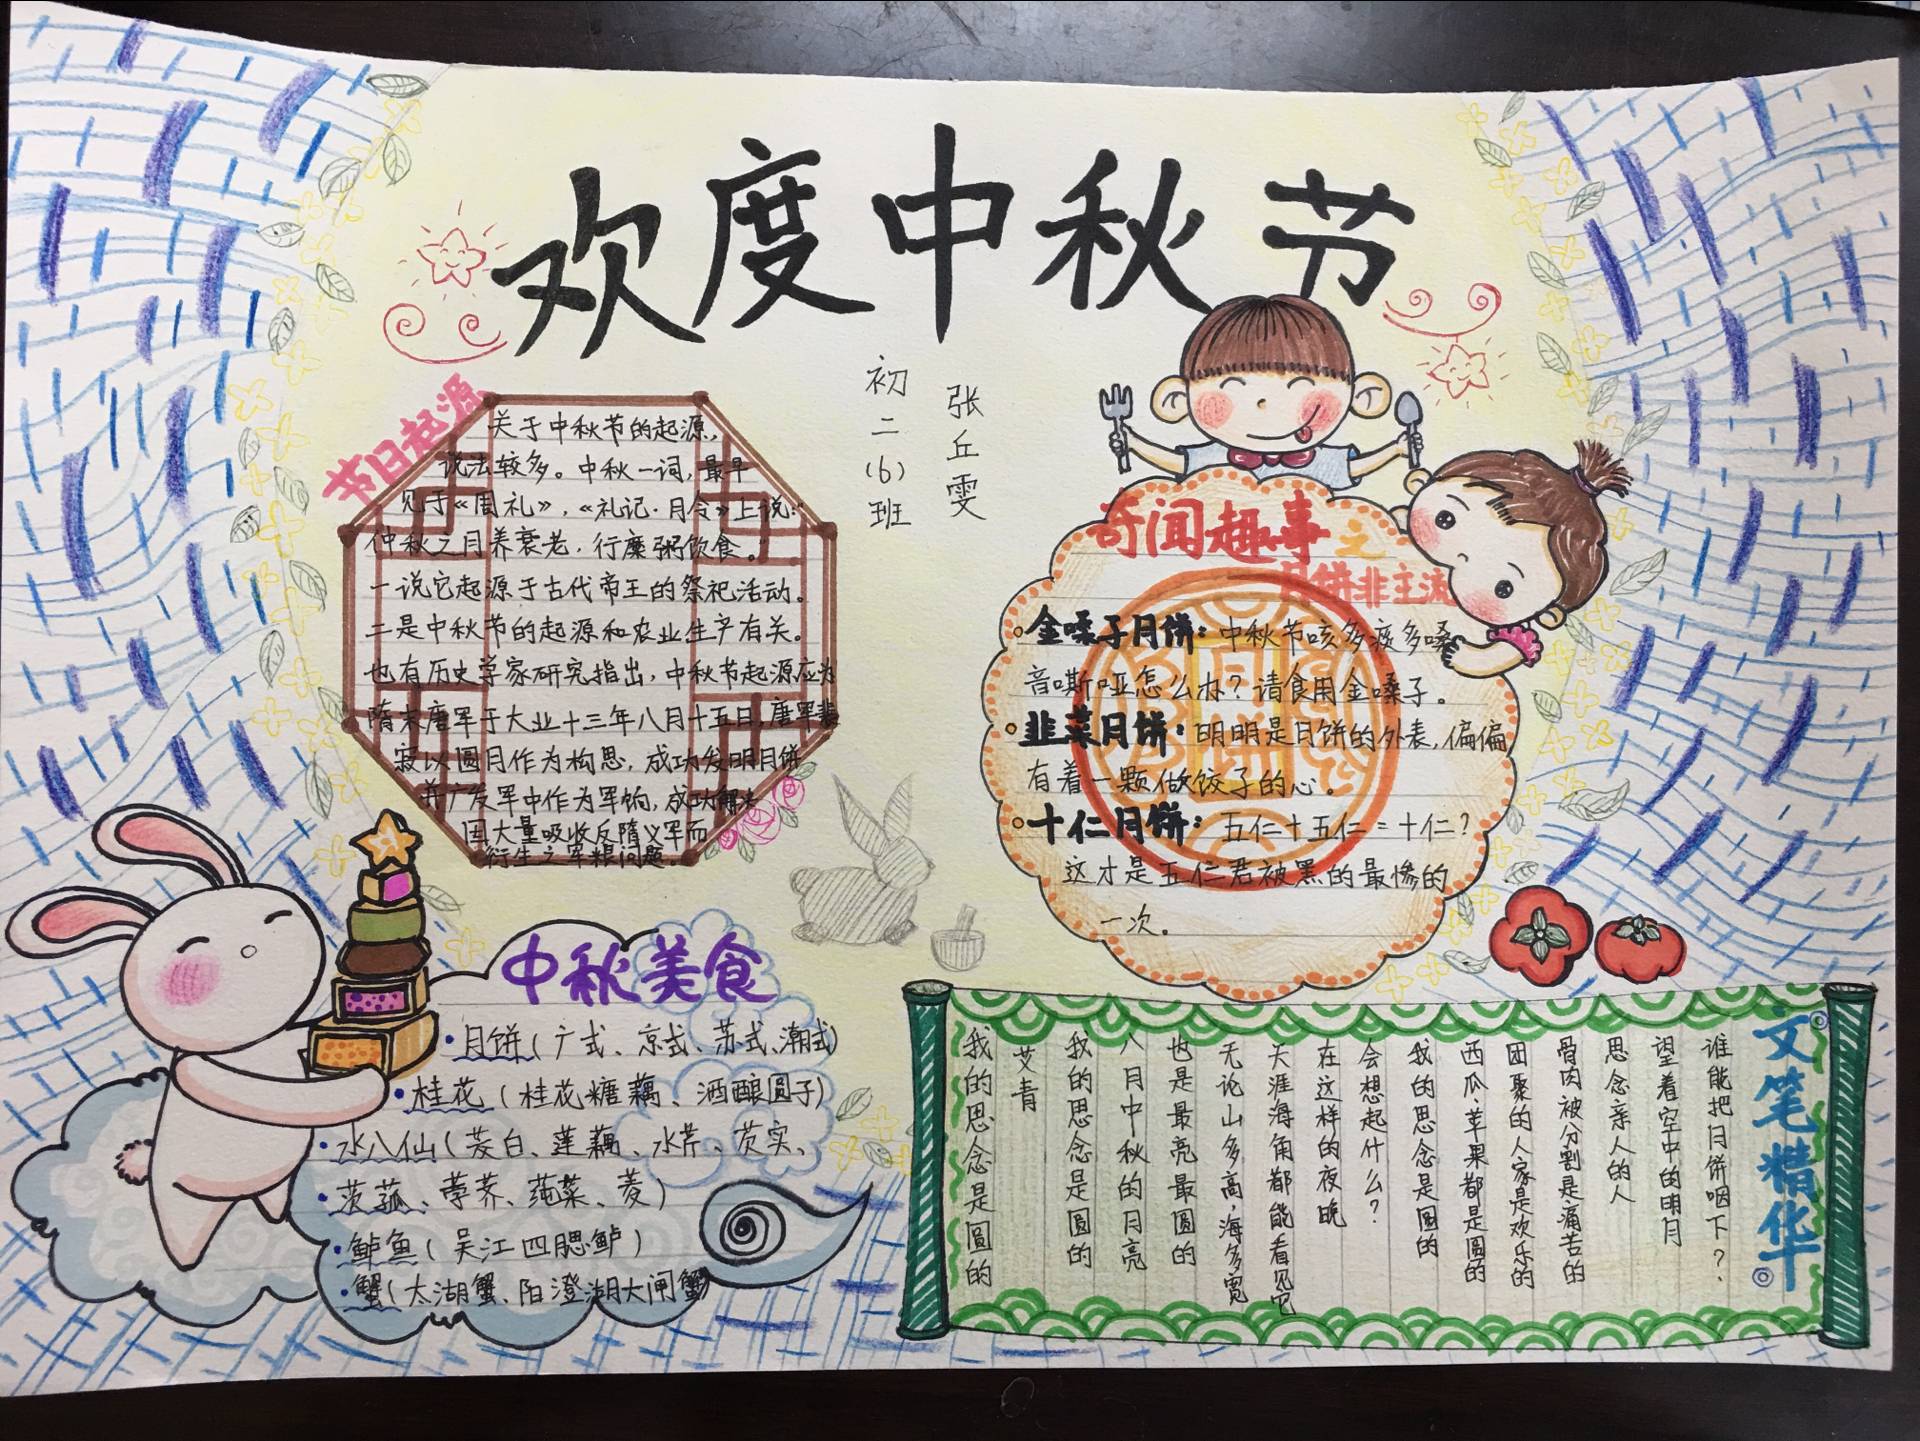 欢度中秋节
初二(6)班
张丘雯
节日起源
关于中秋节的起源,
说法较多。中秋一词,最早
见于《周礼》,《礼记·月令》上说:“
仲秋之月养衰老,行糜粥饮食。”
一说它起源于古代帝王的祭祀活动。
二是中秋节的起源和农业生产有关。
也有历史学家研究指出,中秋节起源应为
隋末唐军于大业十三年八月十五日,唐军裴
寂以圆月作为构思,成功发明月饼
并广发军中作为军饷,成功解决
因大量吸收反隋义军而
衍生之军粮问题。
奇闻趣事之
月饼非主流
金嗓子月饼:中秋节咳多痰多嗓
音嘶哑怎么办?请食用金嗓子。
韭菜月饼:明明是月饼的外表,偏偏
有着一颗做饺子的心。
十仁月饼:五仁+五仁=十仁?
这才是五仁君被黑的最惨的
一次。
月饼
中秋美食
·月饼(广式、京式、苏式、潮式)
·桂花(桂花糖藕、酒酿圆子)
·水八仙(茭白、莲藕、水芹、芡实、
·茨菰、荸荠、莼菜、菱)
·鲈鱼(吴江四腮鲈)
·蟹(太湖蟹、阳澄湖大闸蟹)
文笔精华
谁能把月饼咽下?
望着空中的明月
思念亲人的人
骨肉被分割是痛苦的
团聚的人家是欢乐的
西瓜、苹果都是圆的
我的思念是圆的
会想起什么?
在这样的夜晚
天涯海角都能看见它
无论山多高,海多宽
也是最亮最圆的
八月中秋的月亮
我的思念是圆的
艾青
我的思念是圆的